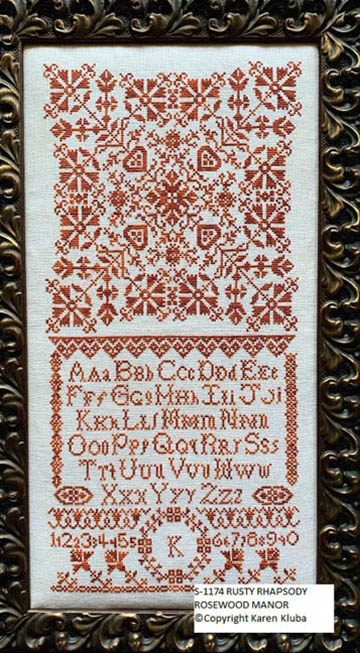 AAa BBb CCc DDd EEe
FFf GGg HHh IIi JJj
KKk LLl MMm NNn
OOo PPp QQq RRr SSs
TTt UUu VVv WWw
XXx YYy ZZz
1 2 3 4 5
K
6 7 8 9 0
S-1174 RUSTY RHAPSODY
ROSEWOOD MANOR
©Copyright Karen Kluba